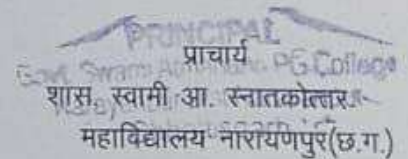 PRINCIPAL
प्राचार्य
Govt. Swami PG College
शास. स्वामी आ. स्नातकोत्तर
महाविद्यालय नारायणपुर(छ.ग.)